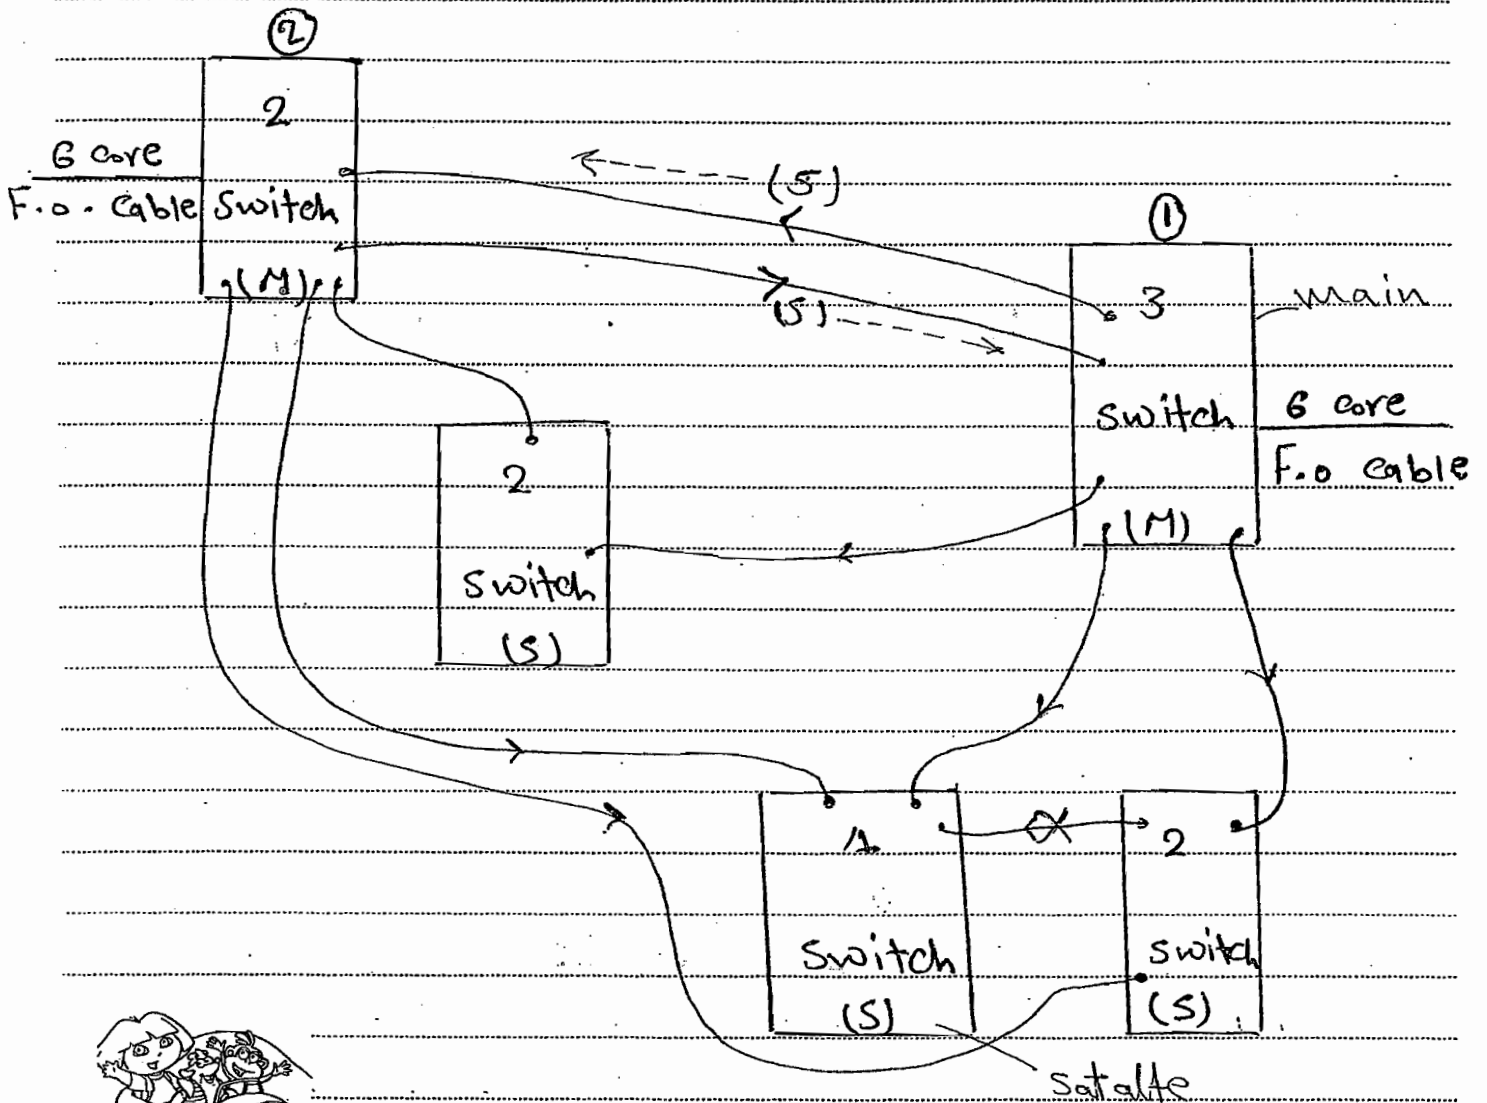 ②
2
6 core
F.o. Cable
Switch
(M)
(5)
(5)
①
3
main
switch
6 core
F.o cable
(M)
2
switch
(S)
1
switch
(S)
2
switch
(S)
satalte